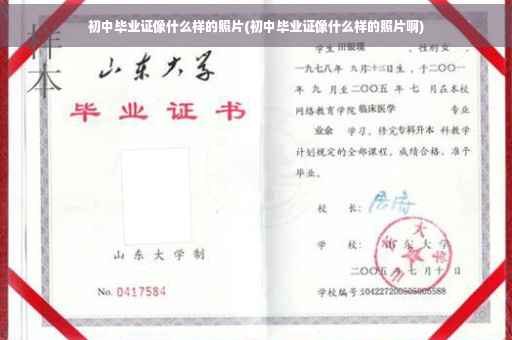 初中毕业证像什么样的照片(初中毕业证像什么样的照片啊)
样本
山东大学
毕业证书
山东大学制
No. 0417584
学生 田俊瑛 ，性别女，
一九七八年 九月十三日生，于二〇〇一
年 九 月至二〇〇五 年 七 月在本校
网络教育学院 临床医学 专业
业余 学习，修完 专科升本 科教学
计划规定的全部课程，成绩合格，准予
毕业。
校 长：
学 校： 山东大学
二〇〇五年七月十日
学校编号:104227200505005588